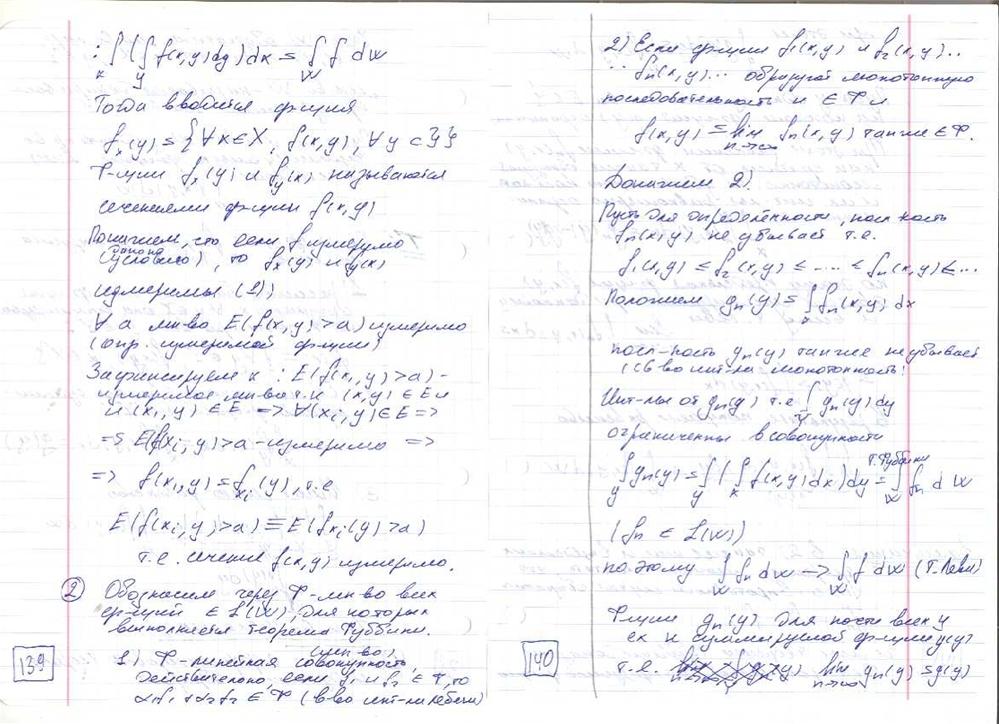 : ∫x (∫y f(x,y)dy)dx = ∫w f dw
Тогда вводится ф-ция
fx(y) = {∀x∈X, f(x,y), ∀y ⊂ Y}
Ф-ции fx(y) и fy(x) называются
сечениями ф-ции f(x,y)
Покажем, что если f измеримо
(условию), то fx(y) и fy(x)
измеримы (1))
∀ a мн-во E(f(x,y)>a) измеримо
(опр. измеримой ф-ции)
Зафиксируем x : E(f(xi,y)>a) -
измеримое мн-во т.к. (x,y) ∈ E и
и (xi,y) ∈ E => ∀(xi,y)∈E =>
=> E(f(xi,y)>a - измеримо =>
=> f(xi,y) = fxi(y), т.е
E(f(xi,y)>a) ≡ E(fxi(y)>a)
т.е. сечение f(x,y) измеримо.
2 Обозначим через Ф - мн-во всех
ф-ций ∈ L(W), для которых
выполняется теорема Фуббини.
1) Ф - линейная совокупность, (мн-во)
Действительно, если f1 и f2 ∈ Ф, то
α1f1 + α2f2 ∈ Ф (в-во инт-ла Лебега)
139
2) Если ф-ции f1(x,y) и f2(x,y)...
... fn(x,y)... образуют монотонную
последовательность и ∈ Ф и
f(x,y) = lim n→∞ fn(x,y) также ∈ Ф.
Докажем 2).
Пусть для определённости, посл-ность
fn(x,y) не убывает т.е.
f1(x,y) ≤ f2(x,y) ≤ .... ≤ fn(x,y) ≤...
Положим gn(y) = ∫x fn(x,y) dx
посл-ность gn(y) также не убывает
(св-во инт-ла монотонность)
Инт-лы от gn(y) т.е ∫y gn(y) dy
ограниченны в совокупности
∫y gn(y) = ∫y (∫x f(x,y) dx) dy = т.Фуббини ∫w fn dW
(fn ∈ L(W))
поэтому ∫w fn dw → ∫w f dw (т. Леви)
Ф-ции gn(y) для почти всех y
сх к суммируемой ф-ции g(y)
т.е. lim n→∞ gn(y) = g(y)
140